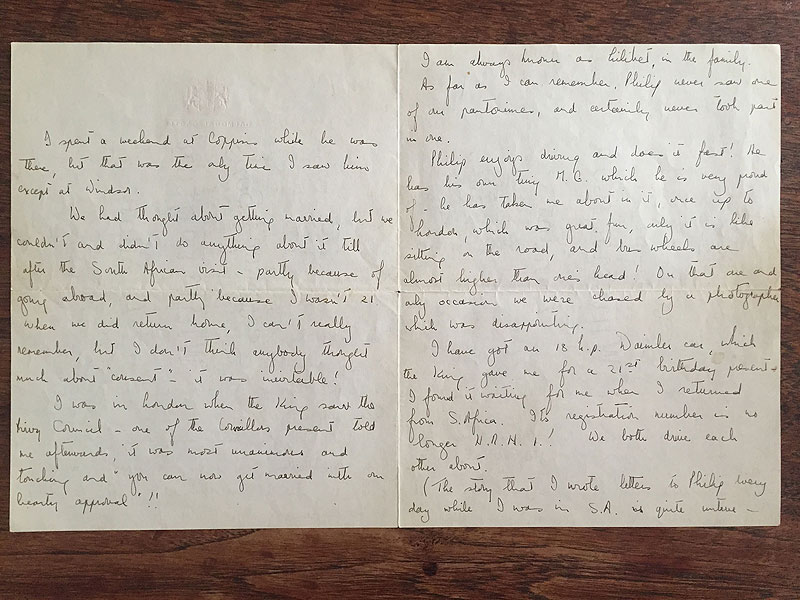 I spent a weekend at Coppins while he was
there, but that was the only time I saw him
except at Windsor.
We had thought about getting married, but we
couldn't and didn't do anything about it till
after the South African visit - partly because of
going abroad, and partly because I wasn't 21
when we did return home, I can't really
remember, but I don't think anybody thought
much about "consent" - it was inevitable!
I was in London when the King saw the
Privy Council - one of the Councillors present told
me afterwards, "it was most unanimous and
touching and "you can now get married with our
hearty approval"!!
I am always known as Lilibet, in the family.
As far as I can remember, Philip never saw one
of our pantomimes, and certainly never took part
in one.
Philip enjoys driving and does it fast! He
has his own tiny M.G. which he is very proud
of - he has taken me about in it, once up to
London, which was great fun, only it is like
sitting on the road, and the wheels are
almost higher than one's head! On that one and
only occasion we were chased by a photographer
which was disappointing.
I have got an 18 h.p. Daimler car, which
the King gave me for a 21st birthday present -
I found it waiting for me when I returned
from S. Africa. Its registration number is no
longer H.R.H. 1.! We both drive each
other about.
(The story that I wrote letters to Philip every
day while I was in S.A. is quite untrue -